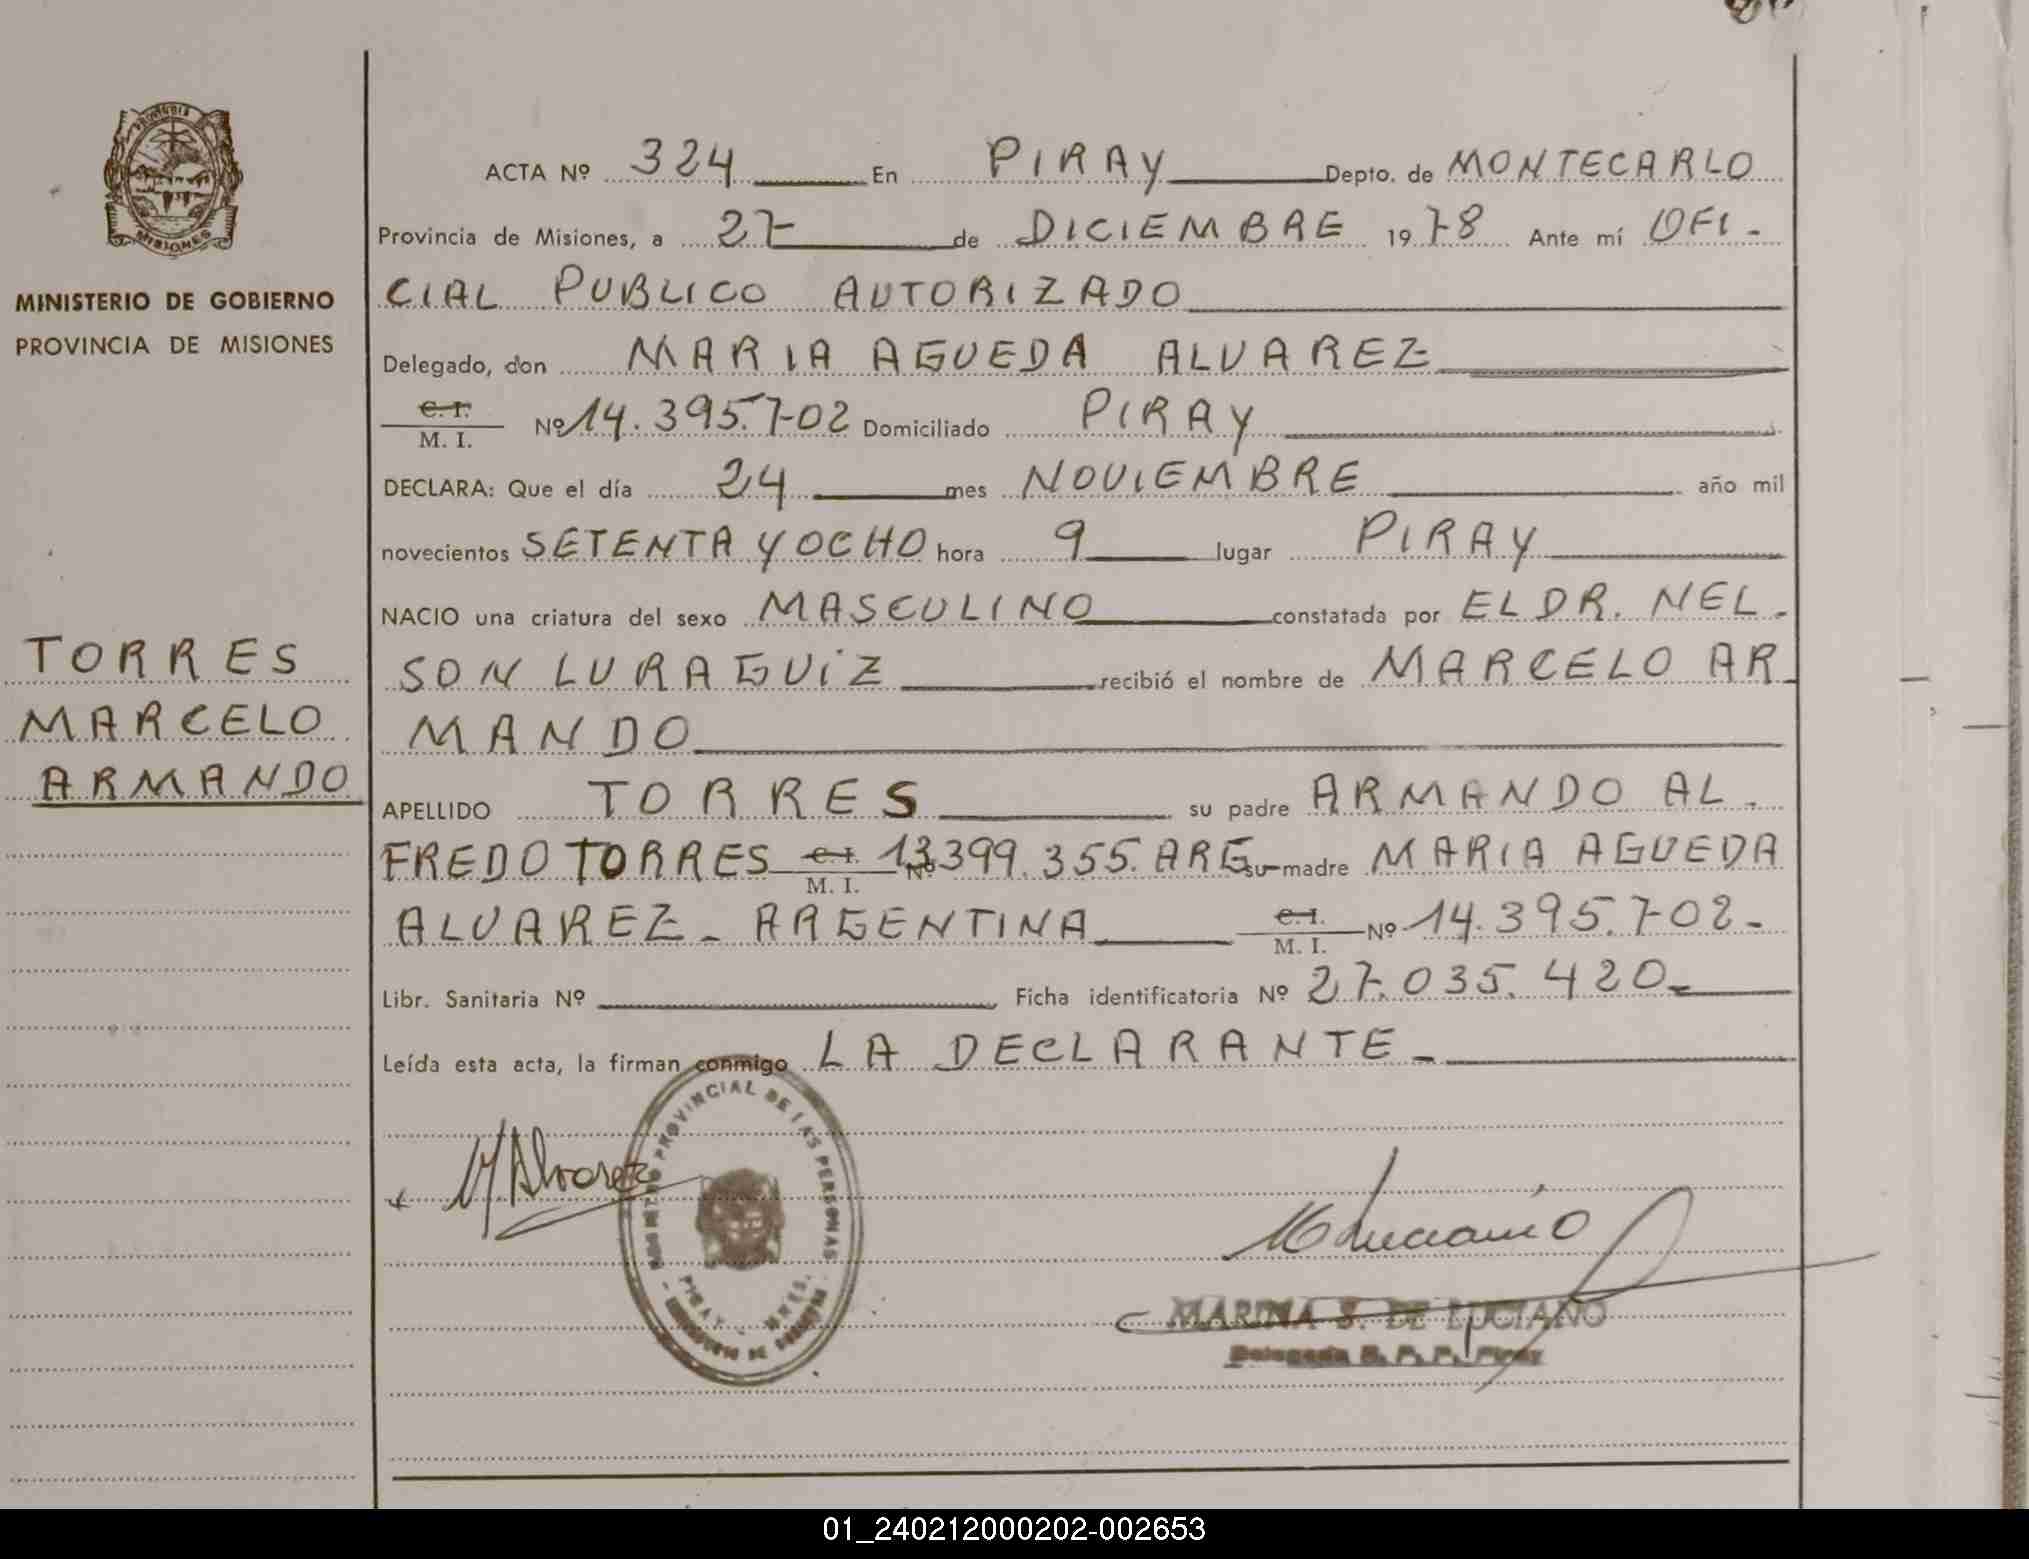 PROVINCIA
MISIONES
MINISTERIO DE GOBIERNO
PROVINCIA DE MISIONES
TORRES
MARCELO
ARMANDO
ACTA Nº 324 En PIRAY Depto. de MONTECARLO
Provincia de Misiones, a 27 de DICIEMBRE 1978 Ante mí OFI-
CIAL PUBLICO AUTORIZADO
Delegado, don MARIA AGUEDA ALVAREZ
C. I.
M. I. Nº 14.395.702 Domiciliado PIRAY
DECLARA: Que el día 24 mes NOVIEMBRE año mil
novecientos SETENTA Y OCHO hora 9 lugar PIRAY
NACIO una criatura del sexo MASCULINO constatada por EL DR. NEL-
SON LURAGUIZ recibió el nombre de MARCELO AR
MANDO
APELLIDO TORRES su padre ARMANDO AL-
FREDO TORRES C. I. M. I. Nº 13.399.355. ARG. su madre MARIA AGUEDA
ALVAREZ - ARGENTINA C. I. M. I. Nº 14.395.702-
Libr. Sanitaria Nº Ficha identificatoria Nº 27.035.420-
Leída esta acta, la firman conmigo LA DECLARANTE-
M Alvarez
REGISTRO PROVINCIAL DE LAS PERSONAS
PIRAY - MNES.
MLuciano
MARINA S. DE LUCIANO
Delegada R. P. P. Piray
01_240212000202-002653